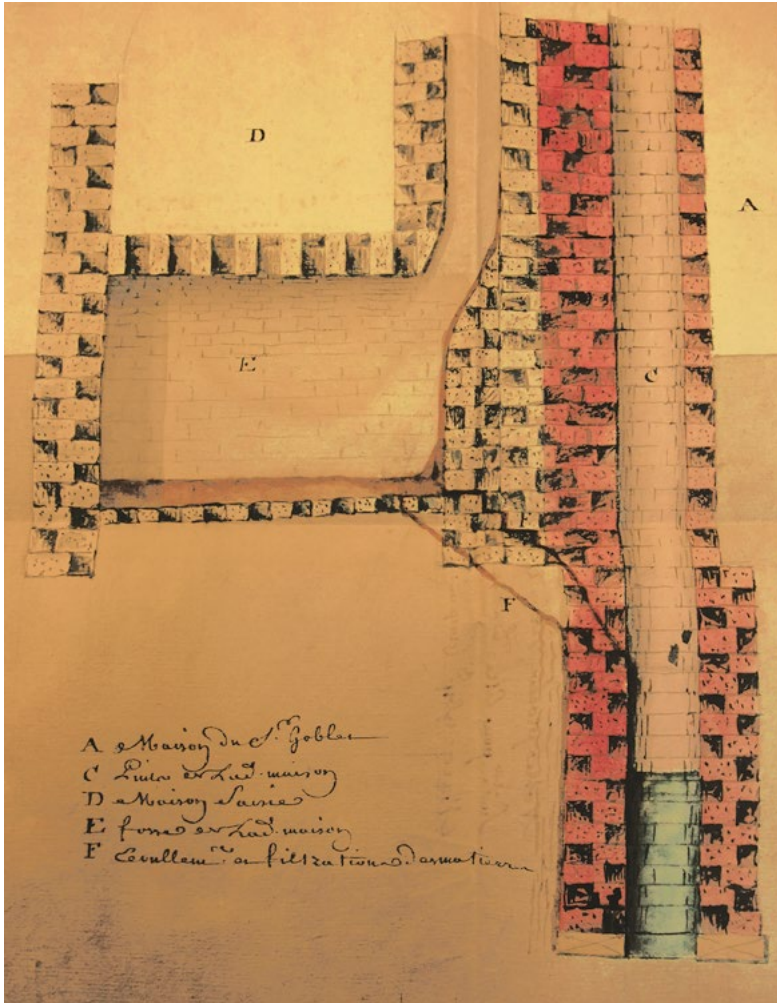 D
A
E
C
F
F
A Maison du S.r Goblet
C Puits de Lad. maison
D Maison Saisie
E fosse de Lad. maison
F Ecoullem.ts et filtrations des matieres